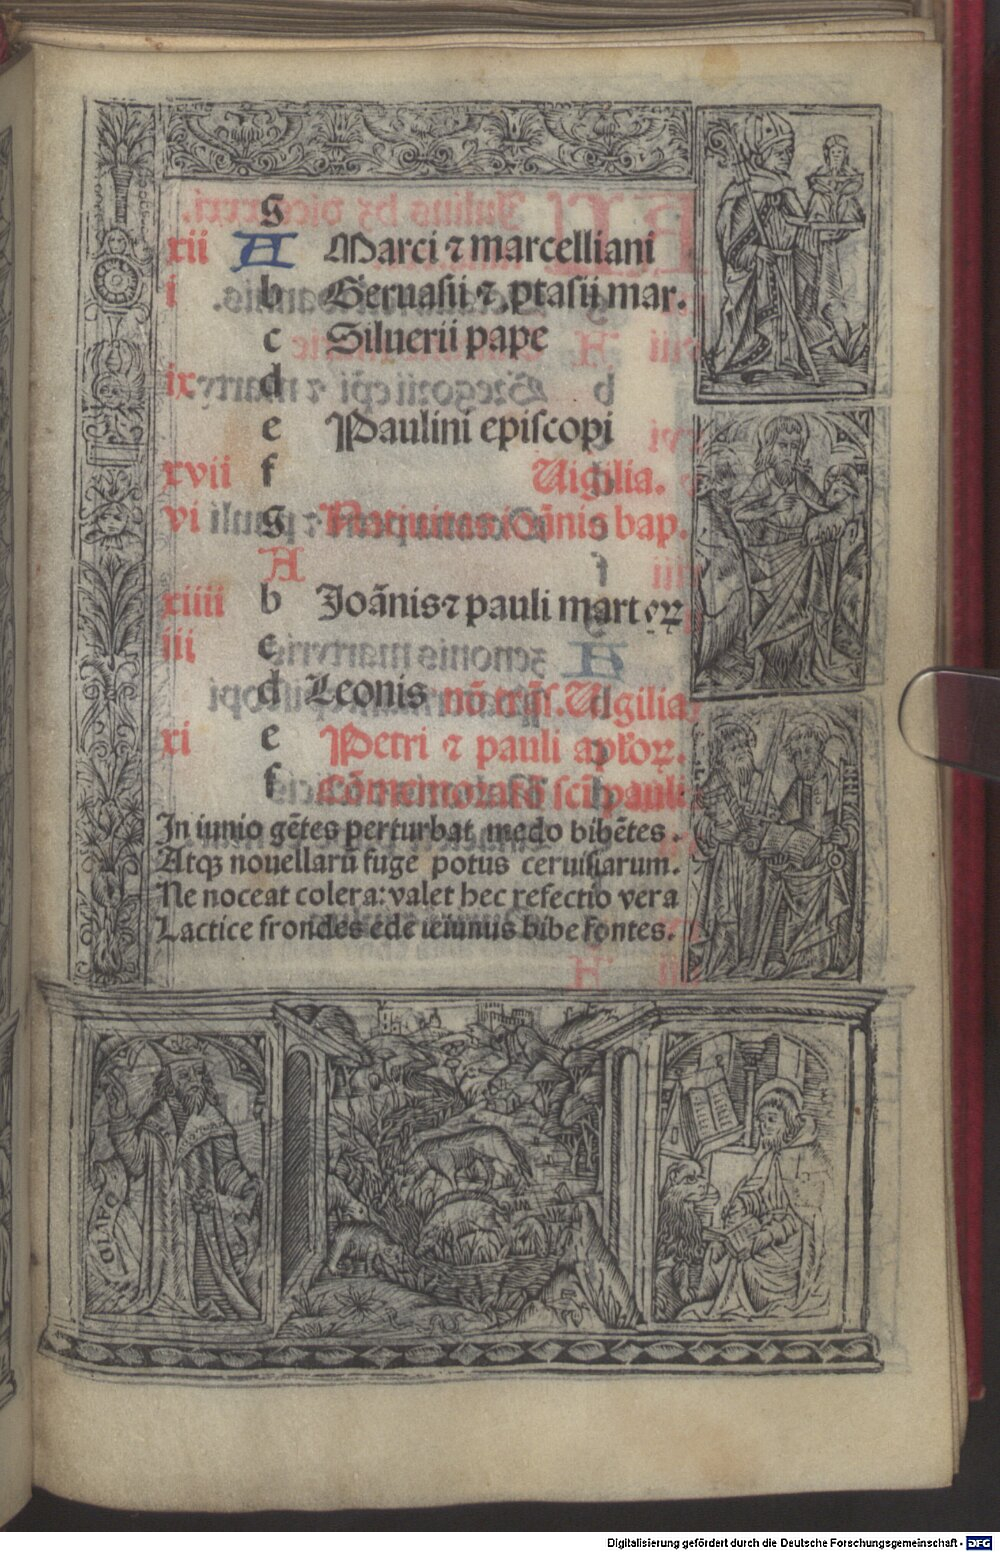 g
xii A Marci ⁊ marcelliani
i b Geruasii ⁊ ꝓtasii mar.
c Siluerii pape
ix d
e Paulini episcopi
xvii f Uigilia.
vi g Natiuitas ioãnis bap.
A
xiiii b Joãnis ⁊ pauli martꝝ
iii c
d Leonis nõ trãs. Uigilia.
xi e Petri ⁊ pauli apłoꝝ.
f Cõmemoratõ sci pauli
In iunio gẽtes perturbat medo bibẽtes.
Atqꝫ nouellarũ fuge potus ceruisiarum.
Ne noceat colera: valet hec refectio vera
Lactice frondes ede ieiunus bibe fontes.
DAVID
Digitalisierung gefördert durch die Deutsche Forschungsgemeinschaft - DFG